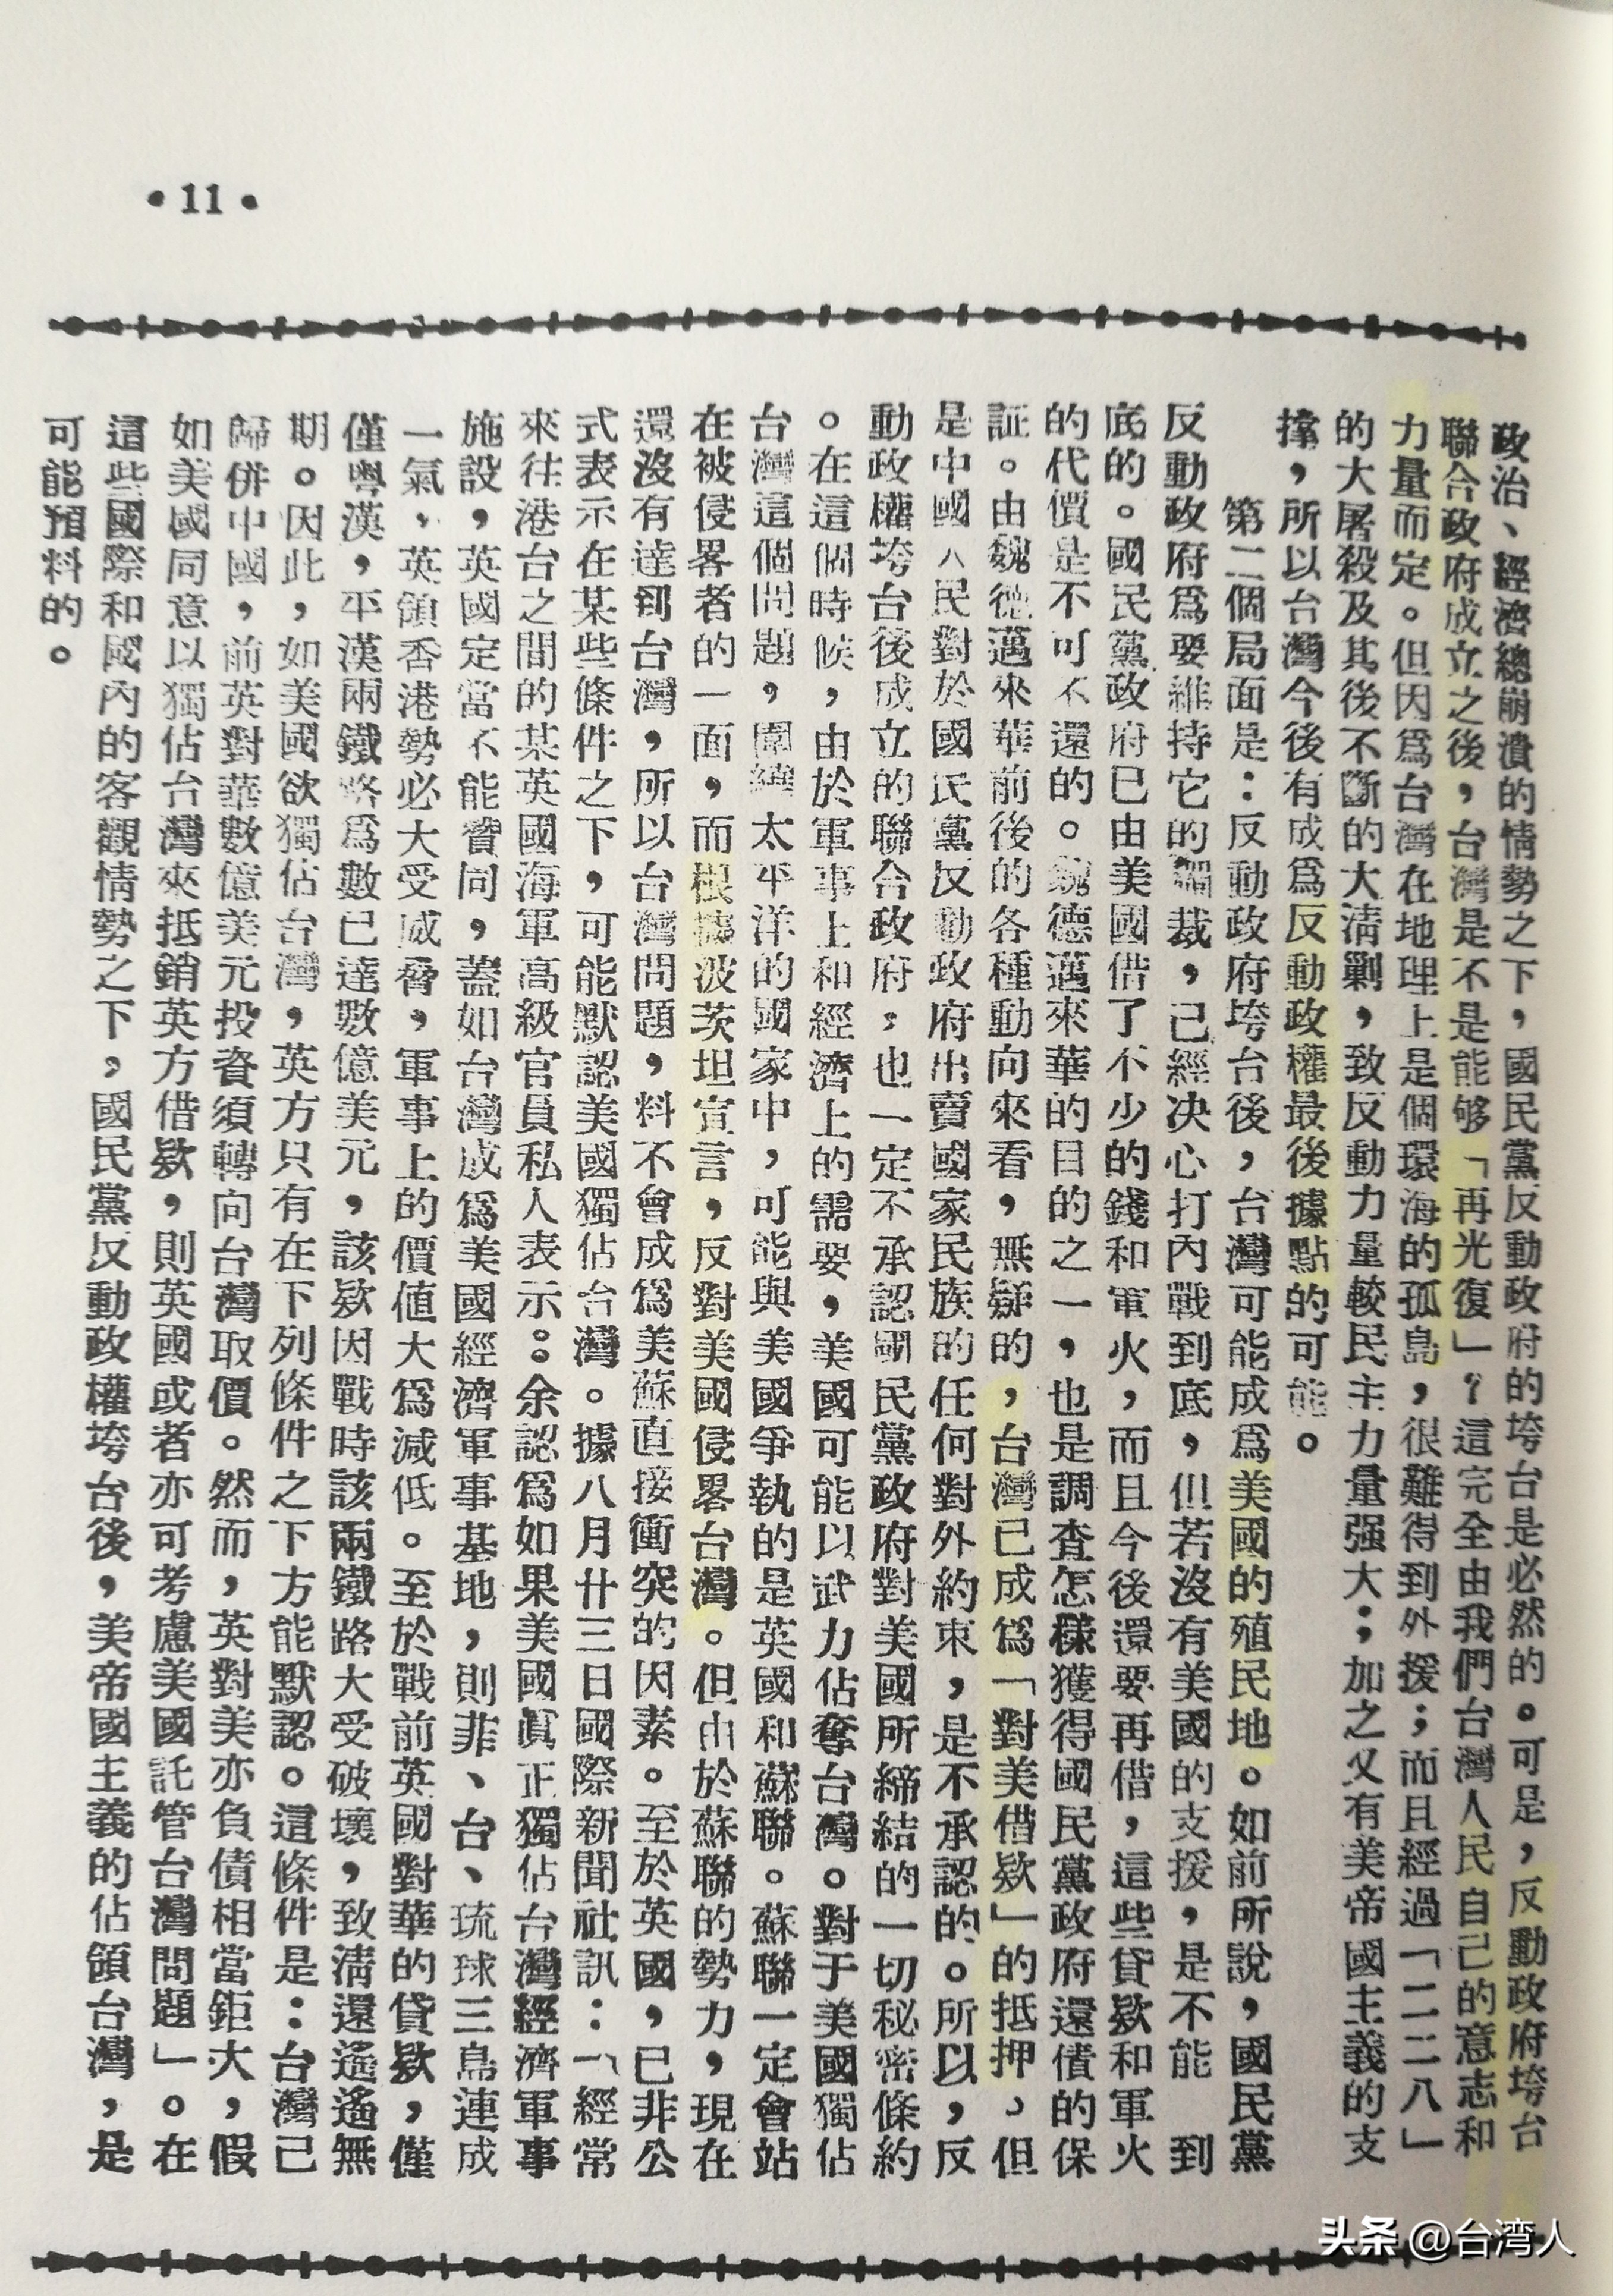 •11•
政治、經濟總崩潰的情勢之下，國民黨反動政府的垮台是必然的。可是，反動政府垮台
聯合政府成立之後，台灣是不是能够「再光復」？這完全由我們台灣人民自己的意志和
力量而定。但因爲台灣在地理上是個環海的孤島，很難得到外援；而且經過「二二八」
的大屠殺及其後不斷的大清剿，致反動力量較民主力量强大；加之又有美帝國主義的支
撐，所以台灣今後有成爲反動政權最後據點的可能。
第二個局面是：反動政府垮台後，台灣可能成爲美國的殖民地。如前所說，國民黨
反動政府爲要維持它的獨裁，已經决心打內戰到底，但若沒有美國的支援，是不能到
底的。國民黨政府已由美國借了不少的錢和軍火，而且今後還要再借，這些貸欵和軍火
的代價是不可不還的。魏德邁來華的目的之一，也是調查怎樣獲得國民黨政府還債的保
証。由魏德邁來華前後的各種動向來看，無疑的，台灣已成爲「對美借欵」的抵押。但
是中國人民對於國民黨反動政府出賣國家民族的任何對外約束，是不承認的。所以，反
動政權垮台後成立的聯合政府，也一定不承認國民黨政府對美國所締結的一切秘密條約
。在這個時候，由於軍事上和經濟上的需要，美國可能以武力佔奪台灣。對于美國獨佔
台灣這個問題，圍繞太平洋的國家中，可能與美國爭執的是英國和蘇聯。蘇聯一定會站
在被侵畧者的一面，而根據波茨坦宣言，反對美國侵畧台灣。但由於蘇聯的勢力，現在
還沒有達到台灣，所以台灣問題，料不會成爲美蘇直接衝突的因素。至於英國，已非公
式表示在某些條件之下，可能默認美國獨佔台灣。據八月廿三日國際新聞社訊：「經常
來往港台之間的某英國海軍高級官員私人表示：余認爲如果美國眞正獨佔台灣經濟軍事
施設，英國定當不能贊同，蓋如台灣成爲美國經濟軍事基地，則菲、台、琉球三島連成
一氣，英領香港勢必大受威脅，軍事上的價値大爲減低。至於戰前英國對華的貸欵，僅
僅粤漢，平漢兩鐵路爲數已達數億美元，該欵因戰時該兩鐵路大受破壞，致淸還遙遙無
期。因此，如美國欲獨佔台灣，英方只有在下列條件之下方能默認。這條件是：台灣已
歸併中國，前英對華數億美元投資須轉向台灣取價。然而，英對美亦負債相當鉅大，假
如美國同意以獨佔台灣來抵銷英方借欵，則英國或者亦可考慮美國託管台灣問題」。在
這些國際和國內的客觀情勢之下，國民黨反動政權垮台後，美帝國主義的佔領台灣，是
可能預料的。
头条 @台湾人